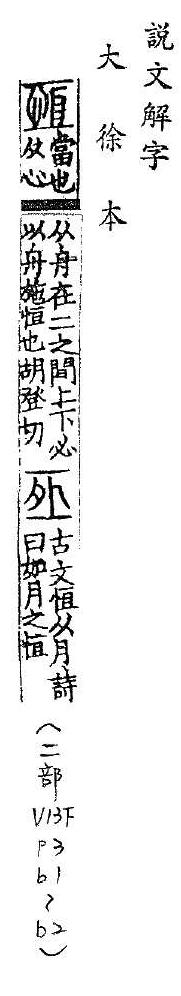 說文解字
大徐本
恆
當也
从心
从舟在二之間上下必
以舟施恒也胡登切
𠄨
古文恒从月詩
曰如月之恒
(二部
V13下
P3
b1
~
b2)